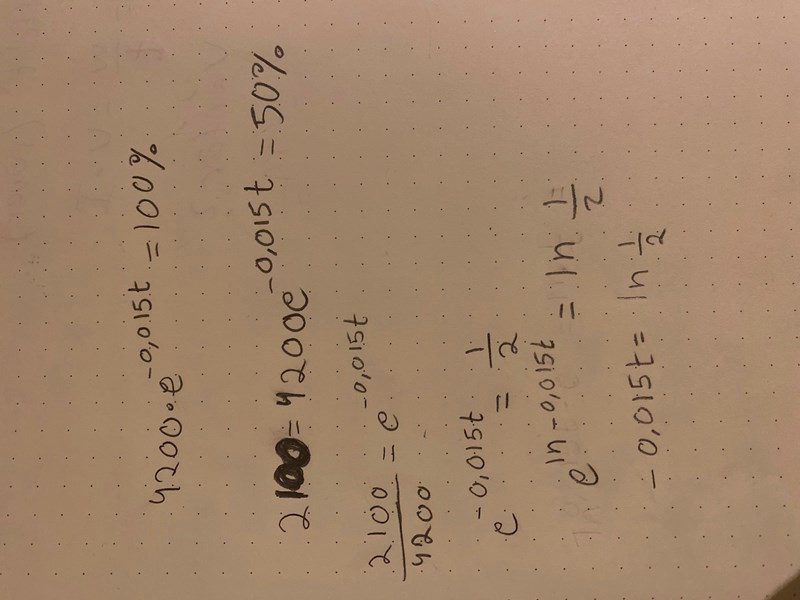 4200·e^-0,015t = 100%
2100 = 4200e^-0,015t = 50%
2100/4200 = e^-0,015t
e^-0,015t = 1/2
e^ln-0,015t = ln 1/2
-0,015t = ln 1/2